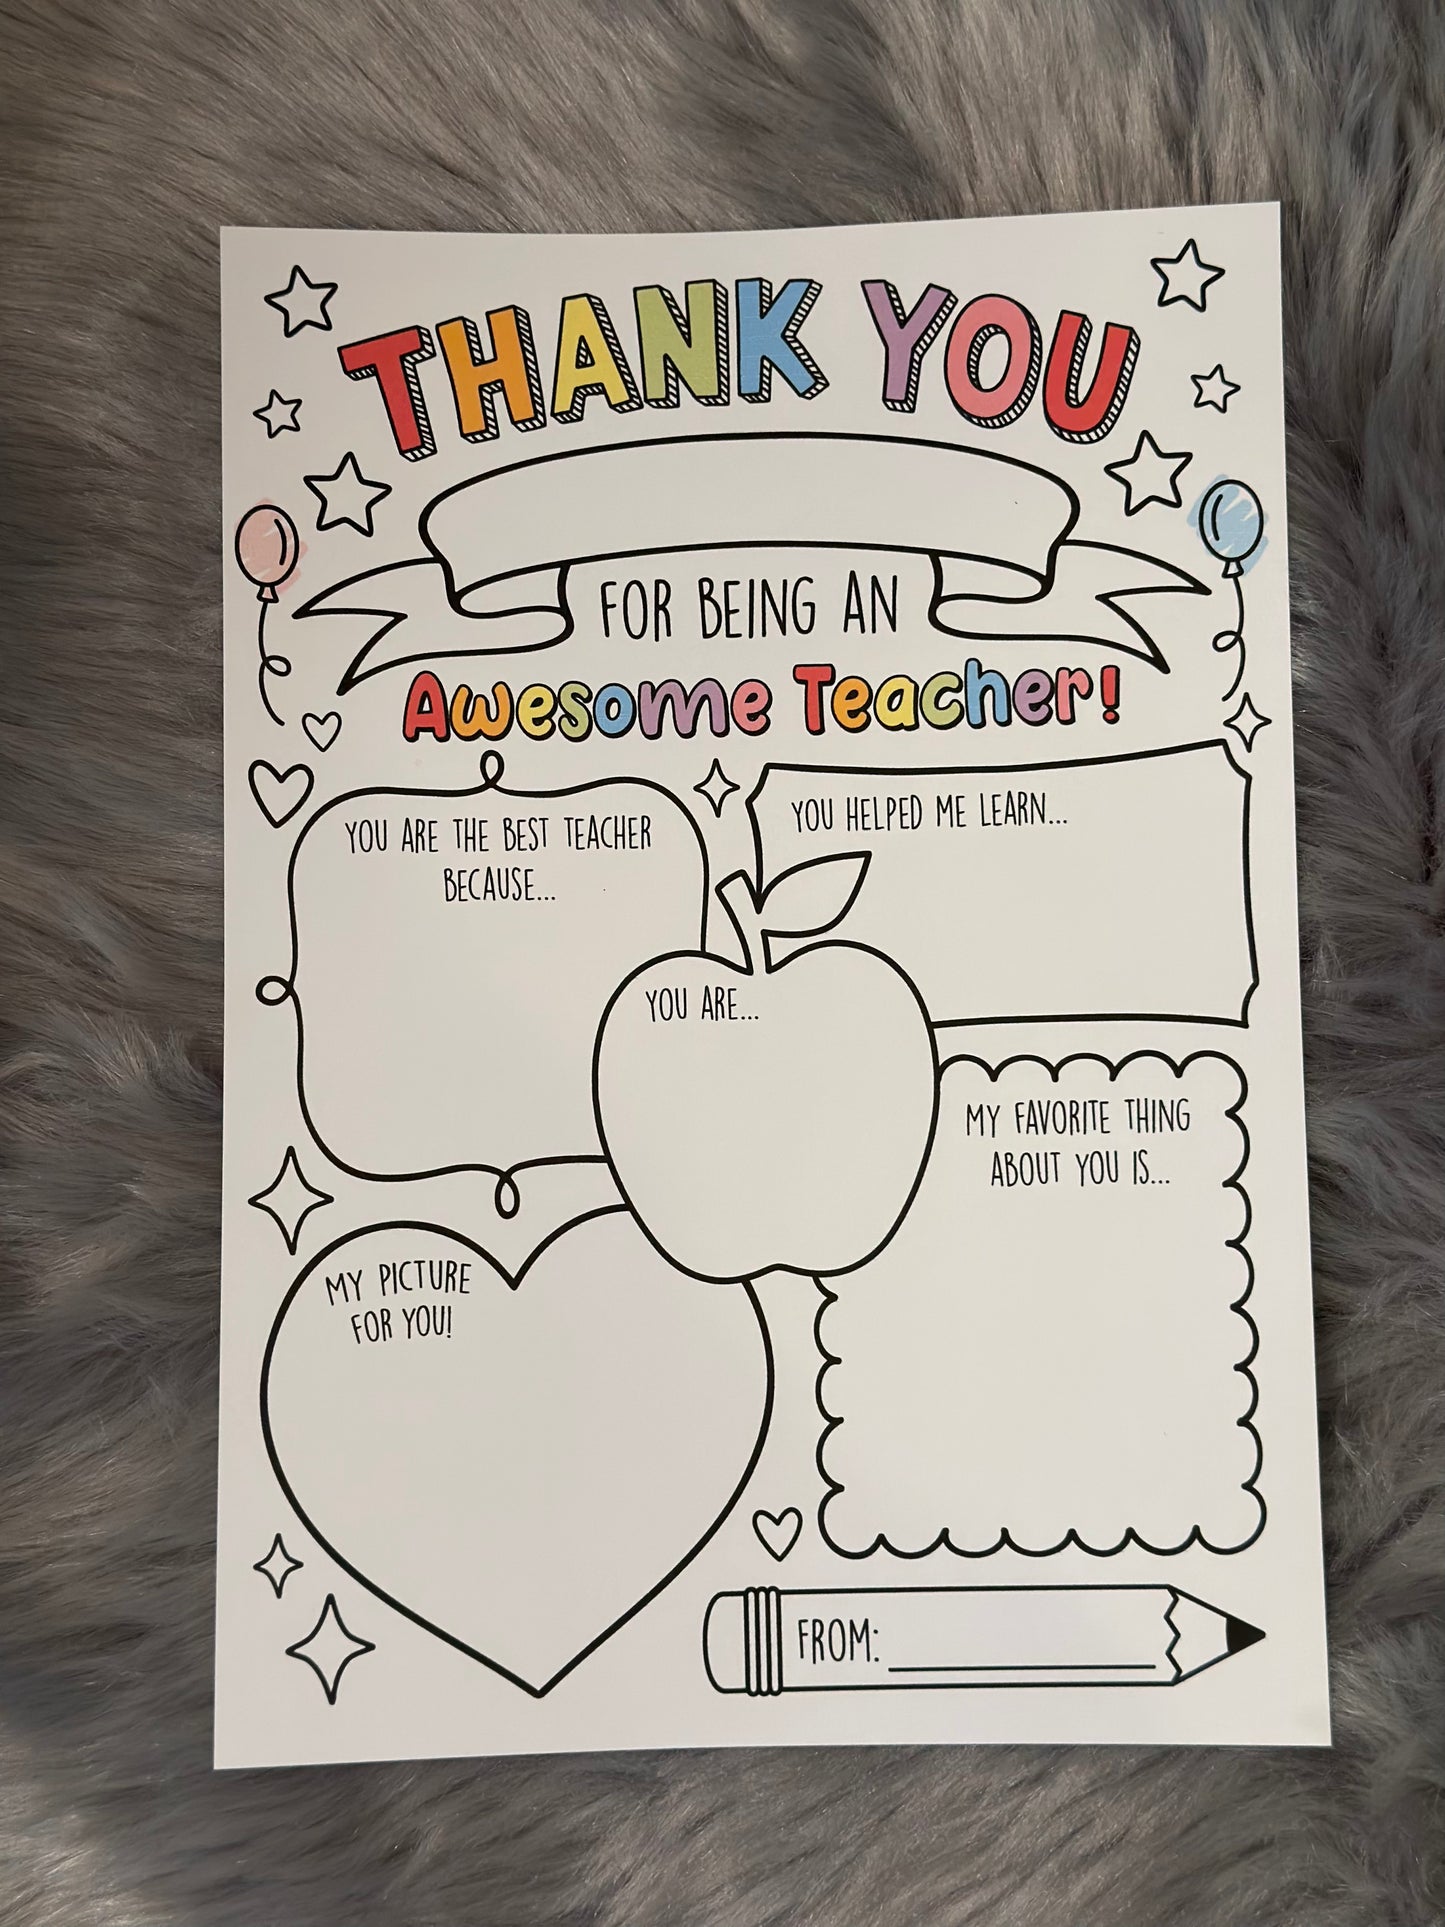 THANK YOU
FOR BEING AN
Awesome Teacher!
YOU ARE THE BEST TEACHER
BECAUSE...
YOU HELPED ME LEARN...
YOU ARE...
MY FAVORITE THING
ABOUT YOU IS...
MY PICTURE
FOR YOU!
FROM: